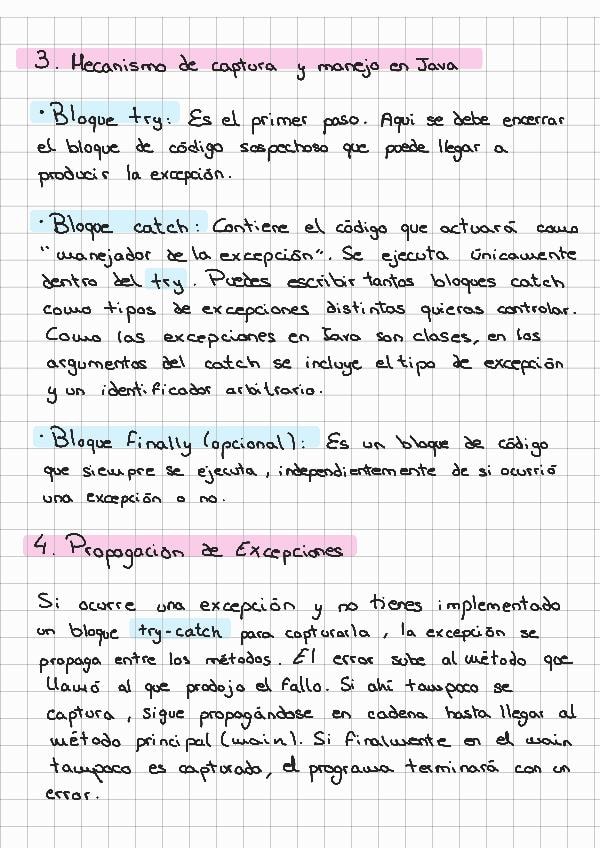 3. Mecanismo de captura y manejo en Java
· Bloque try: Es el primer paso. Aqui se debe encerrar
el bloque de código sospechoso que puede llegar a
producir la excepción.
· Bloque catch: Contiene el código que actuará como
"manejador de la excepción". Se ejecuta únicamente
dentro del try. Puedes escribir tantos bloques catch
como tipos de excepciones distintas quieras controlar.
Como las excepciones en Java son clases, en los
argumentos del catch se incluye el tipo de excepción
y un identificador arbitrario.
· Bloque Finally (opcional): Es un bloque de código
que siempre se ejecuta, independientemente de si ocurrió
una excepción o no.
4. Propagación de Excepciones
Si ocurre una excepción y no tienes implementado
un bloque try-catch para capturarla, la excepción se
propaga entre los métodos. El error sube al método que
llamó al que produjo el fallo. Si ahí tampoco se
captura, sigue propagándose en cadena hasta llegar al
método principal (main). Si finalmente en el main
tampoco es capturado, el programa terminará con un
error.